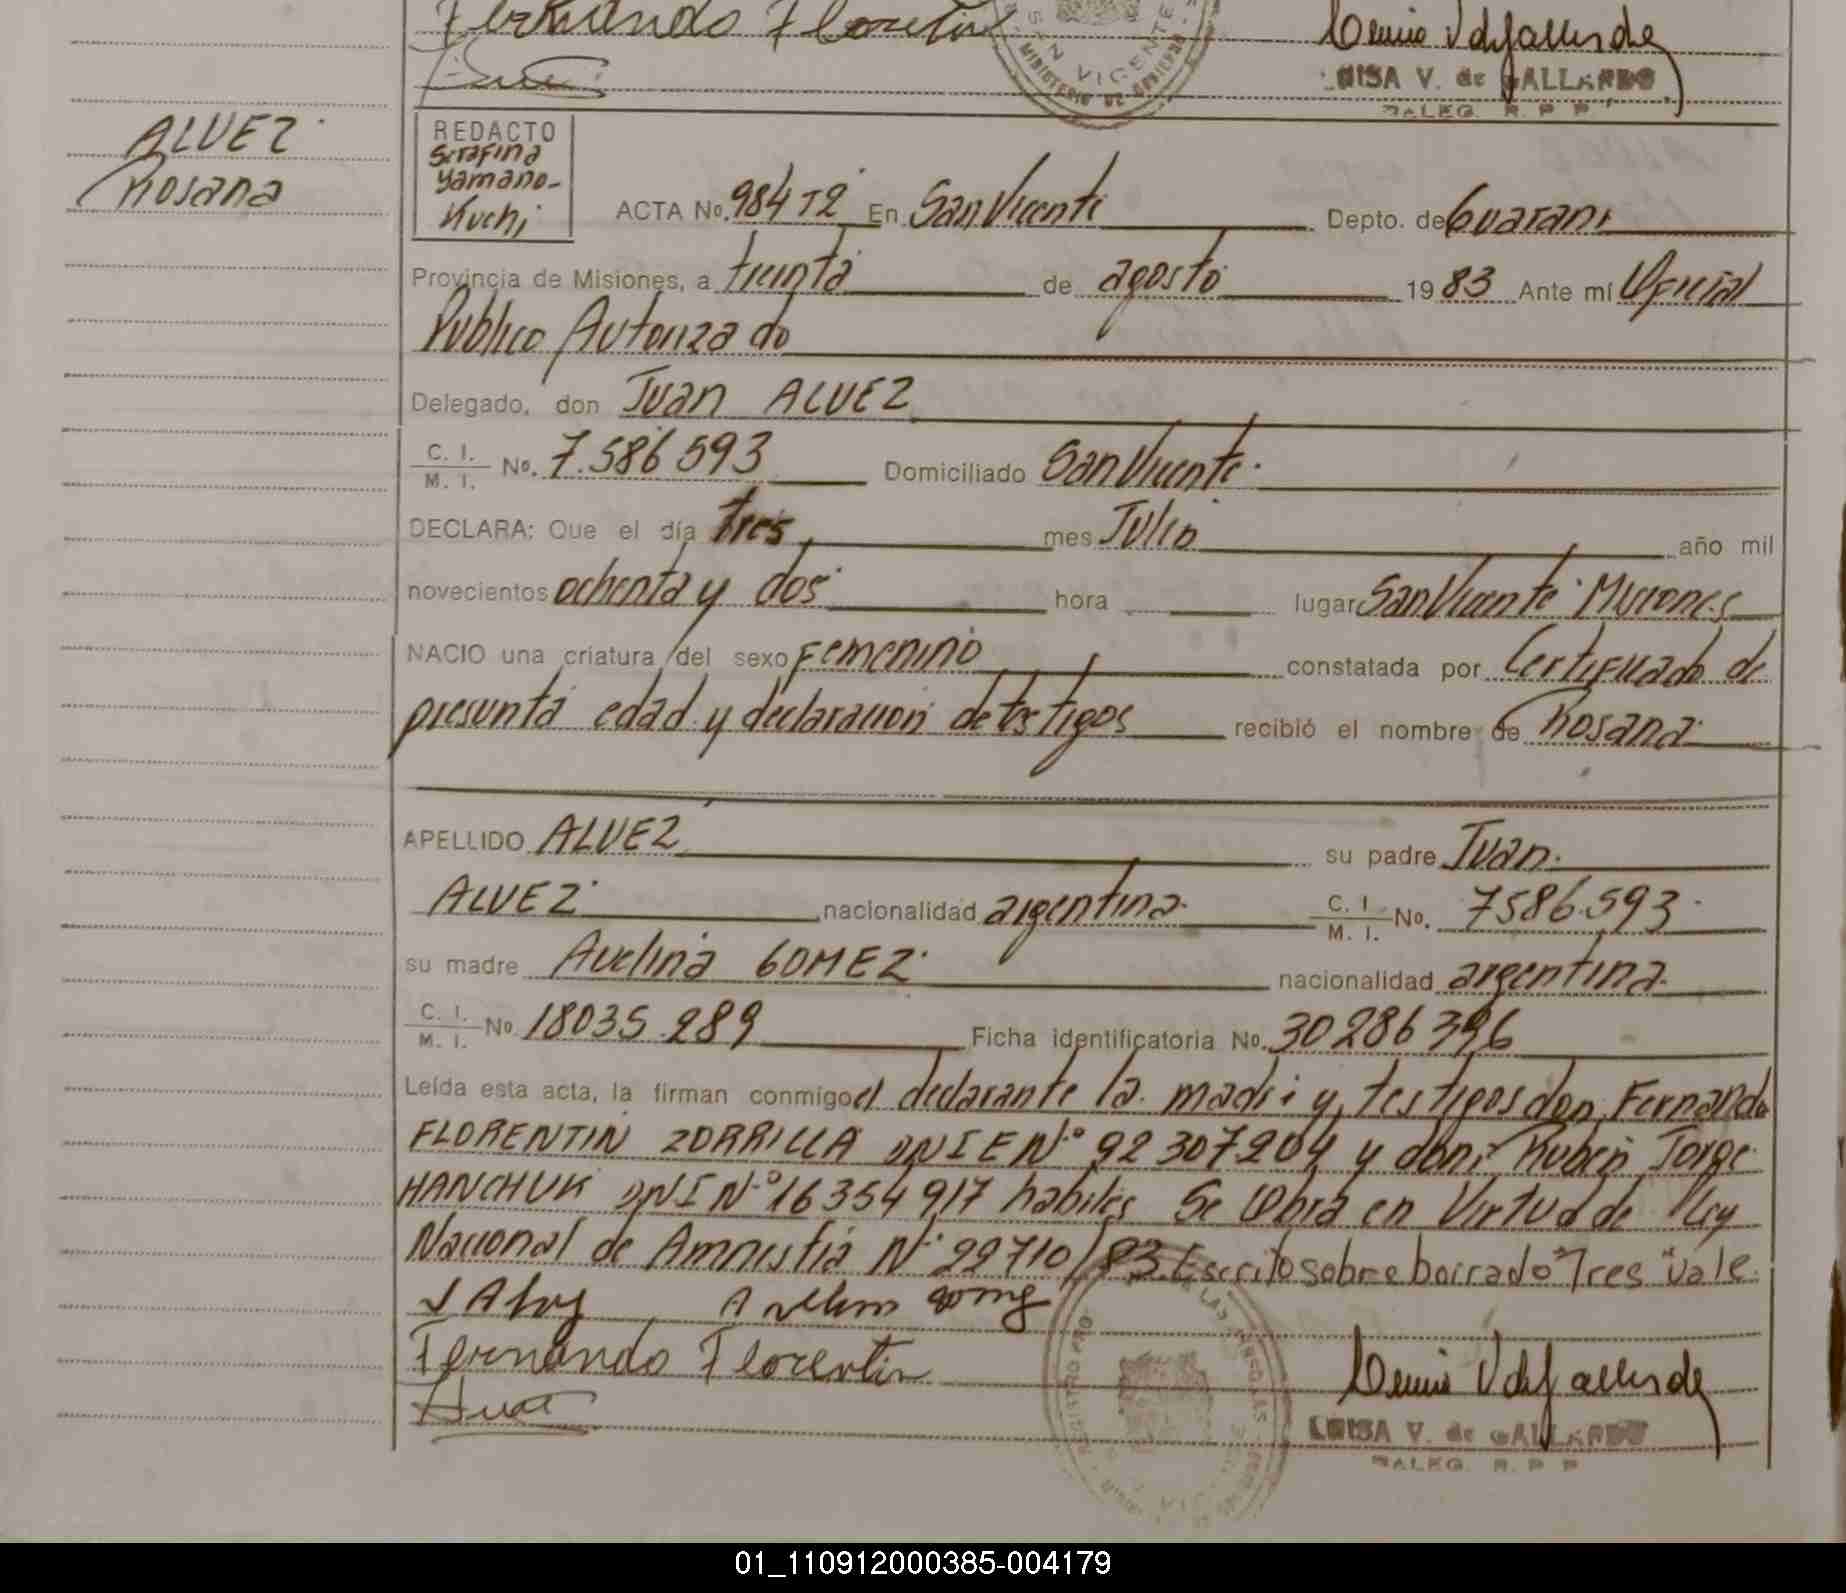 Fernando Florentin
SAN VICENTE
MINISTERIO DE GOBIERNO
LUISA V. de GALLARDO
DALEG. R. P. P.
ALVEZ
Rosana
REDACTO
Serafina
Yamano-
Kuchi
ACTA No. 984 T2 En San Vicente Depto. de Guarani
Provincia de Misiones, a treinta de agosto 1983 Ante mí Oficial
Publico Autorizado
Delegado, don Juan ALVEZ
C. I. / M. I. No. 7.586 593 Domiciliado San Vicente.
DECLARA: Que el día tres mes Julio año mil
novecientos ochenta y dos hora lugar San Vicente Misiones
NACIO una criatura del sexo Femenino constatada por Certificado de
presunta edad y declaracion de testigos recibió el nombre de Rosana
APELLIDO ALVEZ su padre Juan.
ALVEZ nacionalidad argentina. C. I. / M. I. No. 7586.593.
su madre Avelina GOMEZ nacionalidad argentina.
C. I. / M. I. No. 18035.289 Ficha identificatoria No. 30286396
Leída esta acta, la firman conmigo el declarante la madre y testigos don Fernando
FLORENTIN ZORRILLA DNI E Nº 92307204 y don: Ruben Jorge
HANCHUK DNI Nº 16354917 habiles Se Labra en Virtud de Ley
Nacional de Amnistia Nº 22710/83. Escrito sobre borrado "Tres" vale.
J Alvez Avelina gomez
Fernando Florentin
LUISA V. de GALLARDO
DALEG. R. P. P.
01_110912000385-004179